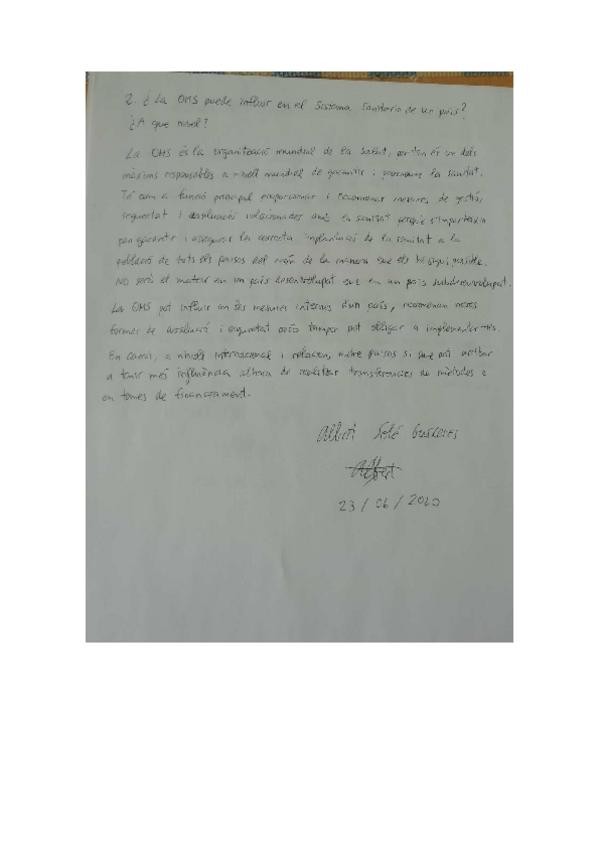 2. ¿La OMS puede influir en el Sistema Sanitario de un país?
¿A que nivel?
La OMS és la organització mundial de la Salut, per tan és un dels
màxims responsables a nivell mundial de garantir i la sanitat.
Té com a funció principal proporcionar i recomanar mesures de gestió,
seguretat i avaluació relacionades amb la sanitat perquè s'imparteixin
per garantir i assegurar la correcta implantació de la sanitat a la
població de tots els països del món de la manera que els hi sigui possible.
No serà el mateix en un país desenvolupat que en un país subdesenvolupat.
La OMS pot influir en les mesures internes d'un país, recomanan noves
formes de avaluació i seguretat però tampoc pot obligar a implementar-les.
En canvi, a nivell internacional i relacions entre països si que pot arribar
a tenir més influència alhora de realitzar transferencies de mètodes o
en temes de finançament.
Albert Solé
Albert
23/06/2020